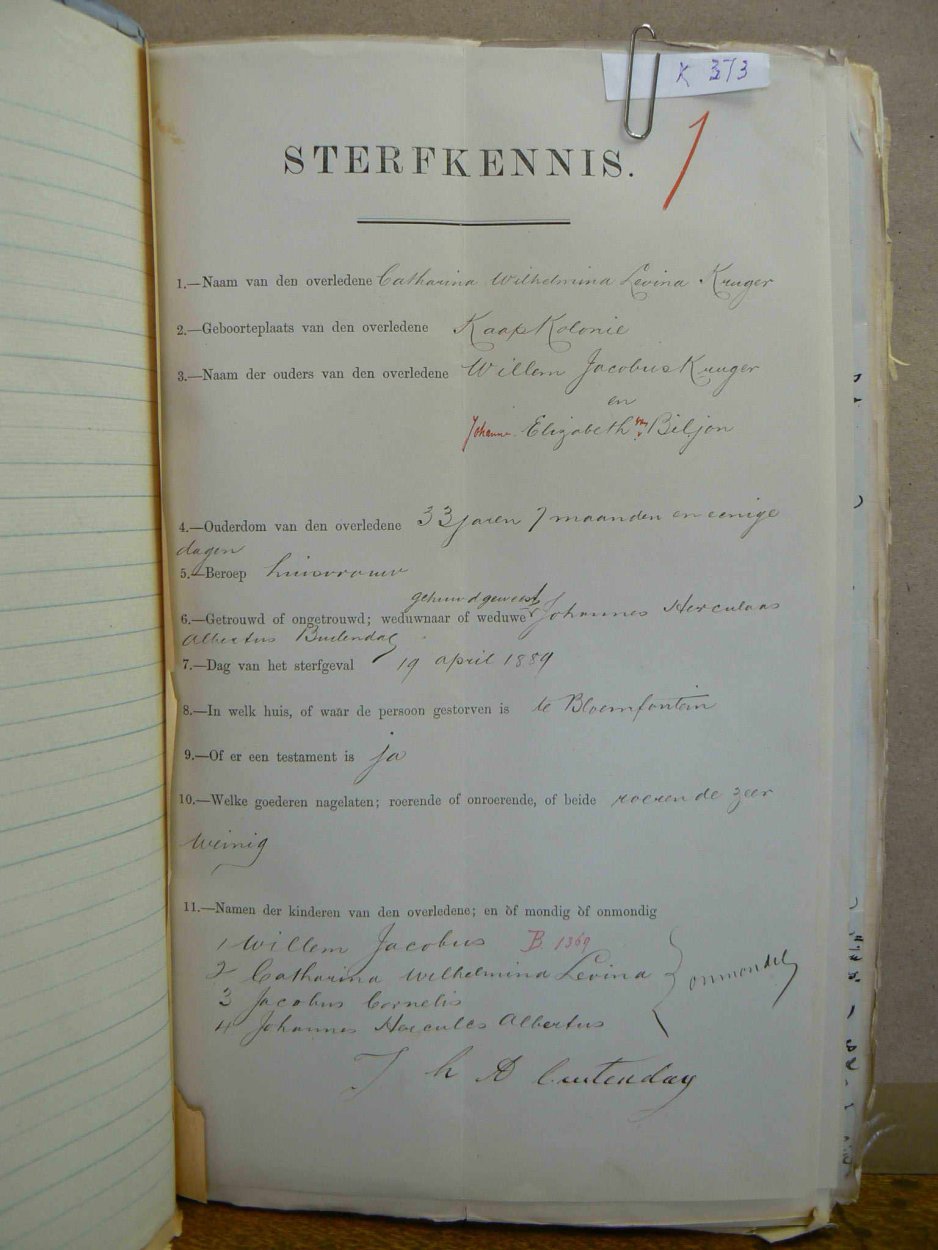 K 373
STERFKENNIS.
1.—Naam van den overledene Catharina Wilhelmina Levina Kruger
2.—Geboorteplaats van den overledene Kaap Kolonie
3.—Naam der ouders van den overledene Willem Jacobus Kruger
en
Johanna Elizabeth v. Biljon
4.—Ouderdom van den overledene 33 jaren 7 maanden en eenige
dagen
5.—Beroep huisvrouw
gehuwd geweest
6.—Getrouwd of ongetrouwd; weduwnaar of weduwe Johannes Herculaas
Albertus Buitendag
7.—Dag van het sterfgeval 19 april 1889
8.—In welk huis, of waar de persoon gestorven is te Bloemfontein
9.—Of er een testament is ja
10.—Welke goederen nagelaten; roerende of onroerende, of beide roerende zeer
weinig
11.—Namen der kinderen van den overledene; en òf mondig òf onmondig
1 Willem Jacobus B 1369
2 Catharina Wilhelmina Levina
3 Jacobus Cornelis
4 Johannes Hercules Albertus
J h A Buitendag